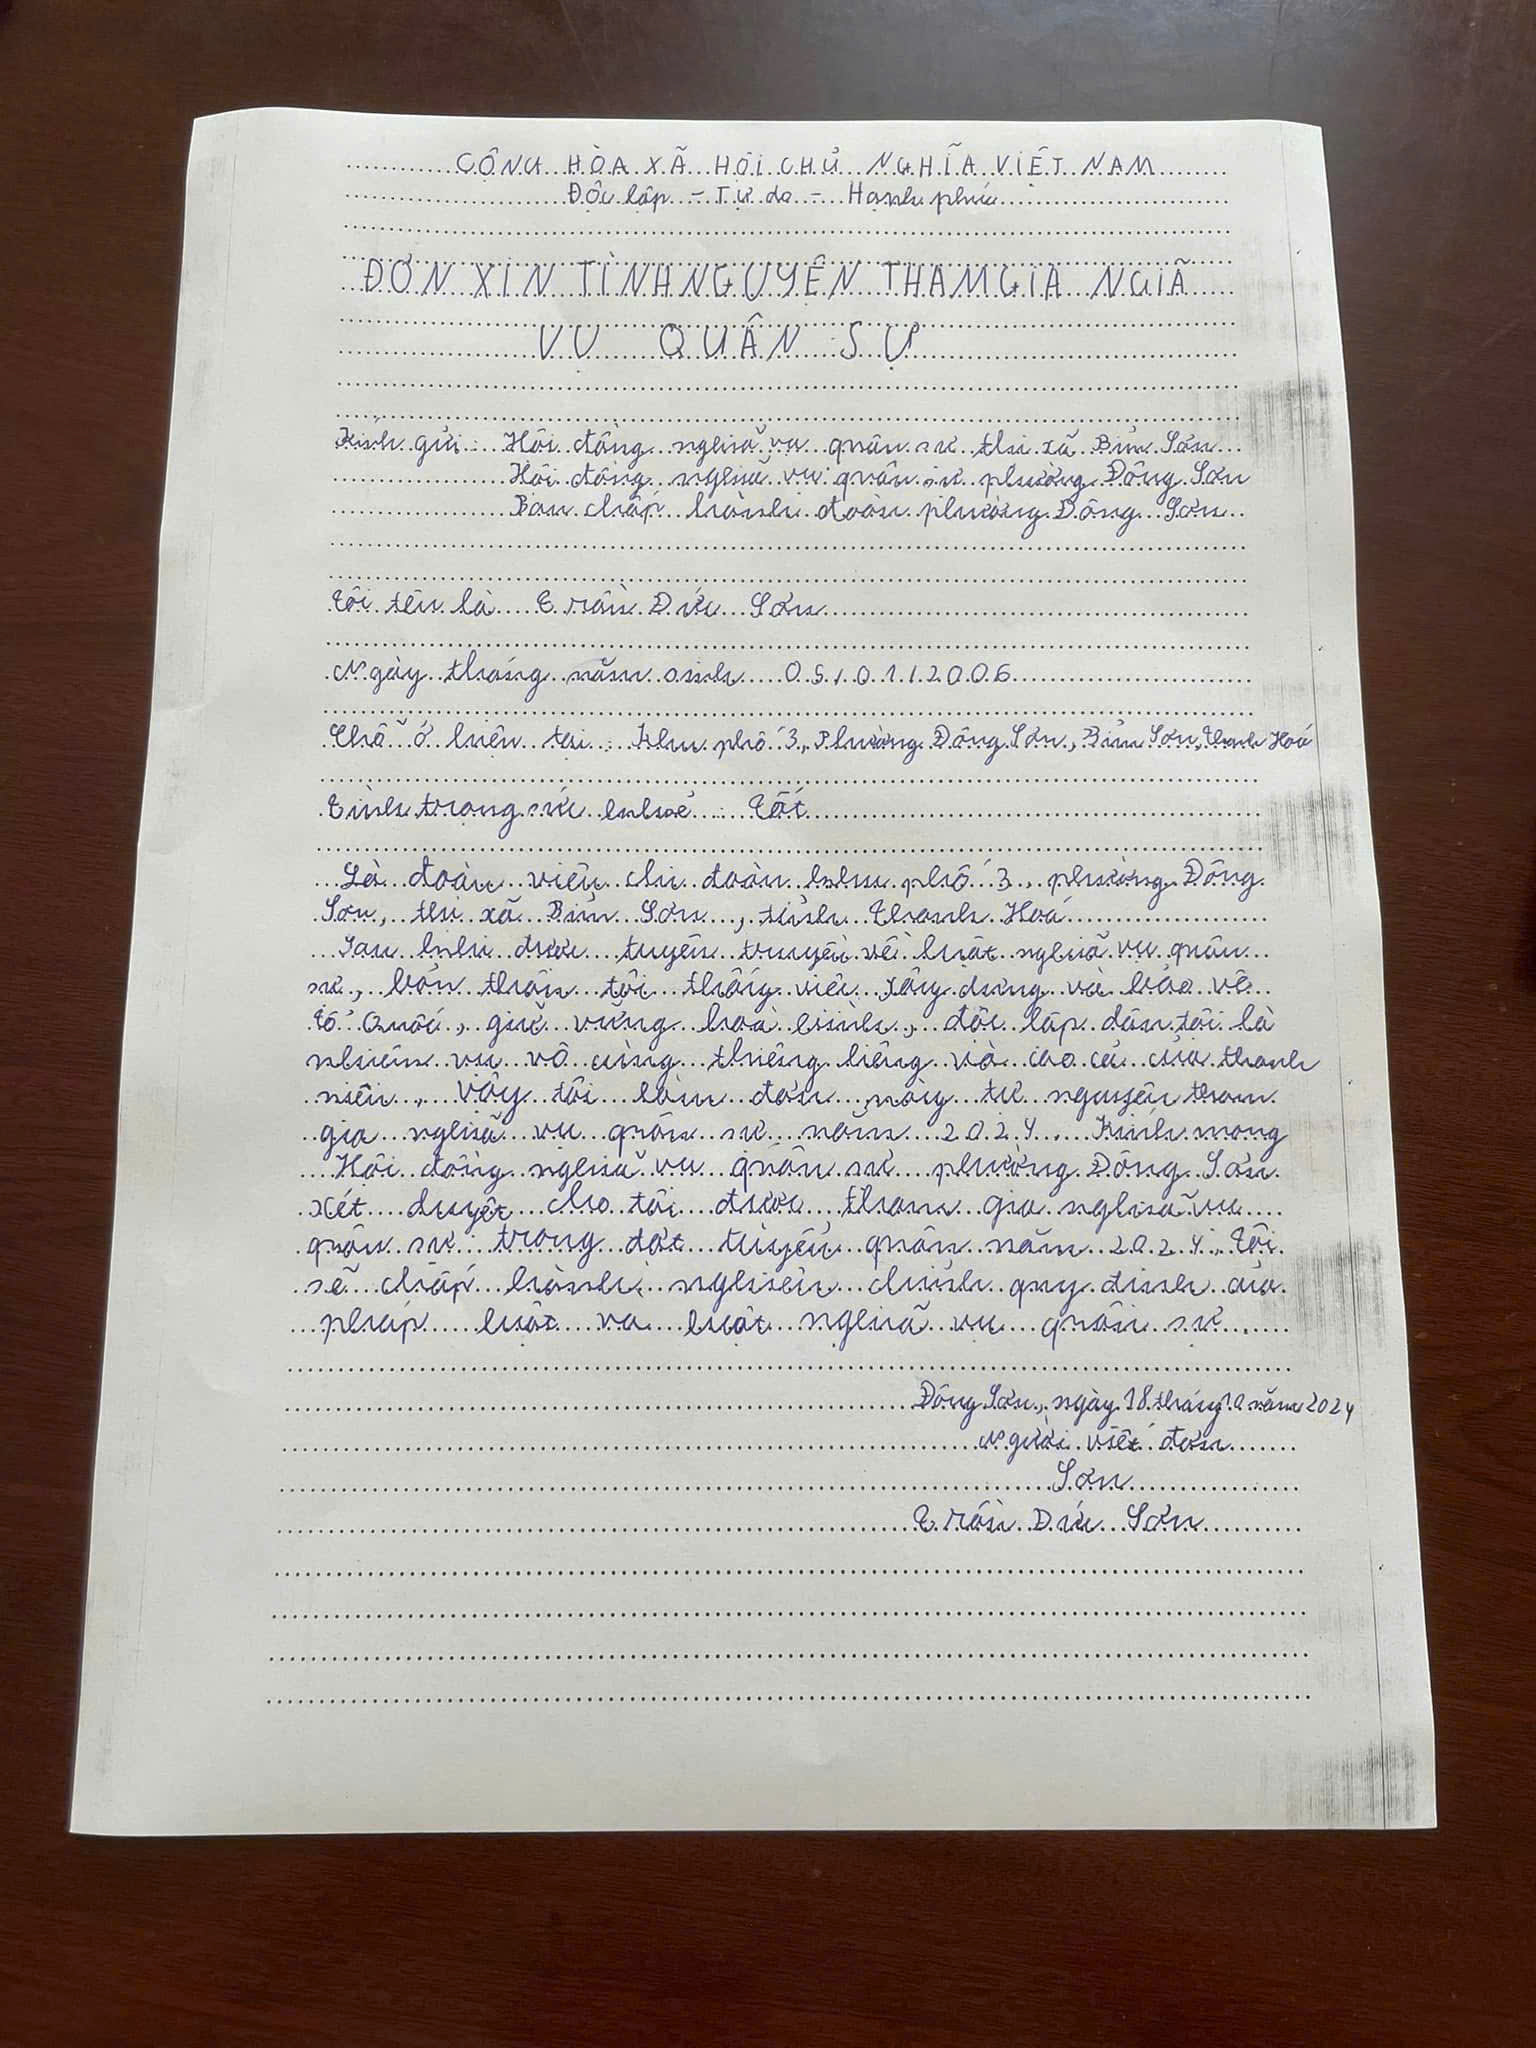 CỘNG HÒA XÃ HỘI CHỦ NGHĨA VIỆT NAM
Độc lập - Tự do - Hạnh phúc
ĐƠN XIN TÌNH NGUYỆN THAM GIA NGIÃ
VỤ QUÂN SỰ
Kính gửi: Hội đồng nghiã vụ quân sự thị xã Bỉm Sơn
Hội đồng nghiã vụ quân sự phường Đông Sơn
Ban chấp hành đoàn phường Đông Sơn
Tôi tên là Trần Đức Sơn
Ngày tháng năm sinh 05/01/2006
Chỗ ở hiện tại: Khu phố 3, Phường Đông Sơn, Bỉm Sơn, Thanh Hoá
Tình trạng sức khoẻ: Tốt
Là đoàn viên chi đoàn khu phố 3, phường Đông
Sơn, thị xã Bỉm Sơn, tỉnh Thanh Hoá
Sau khi được tuyên truyền về luật nghiã vụ quân
sự, bản thân tôi thấy việc xây dựng và bảo vệ
Tổ Quốc, giữ vững hoà bình, độc lập dân tôi là
nhiệm vụ vô cùng thiêng liêng và cao cả của thanh
niên, vậy tôi làm đơn này tự nguyện tham
gia nghiã vụ quân sự năm 2024. Kính mong
Hội đồng nghiã vụ quân sự phường Đông Sơn
xét duyệt cho tôi được tham gia nghiã vụ
quân sự trong đợt tuyển quân năm 2024. Tôi
sẽ chấp hành nghiêm chỉnh quy định của
pháp luật và luật nghiã vụ quân sự.
Đông Sơn, ngày 18 tháng 10 năm 2024
Người viết đơn
Sơn
Trần Đức Sơn